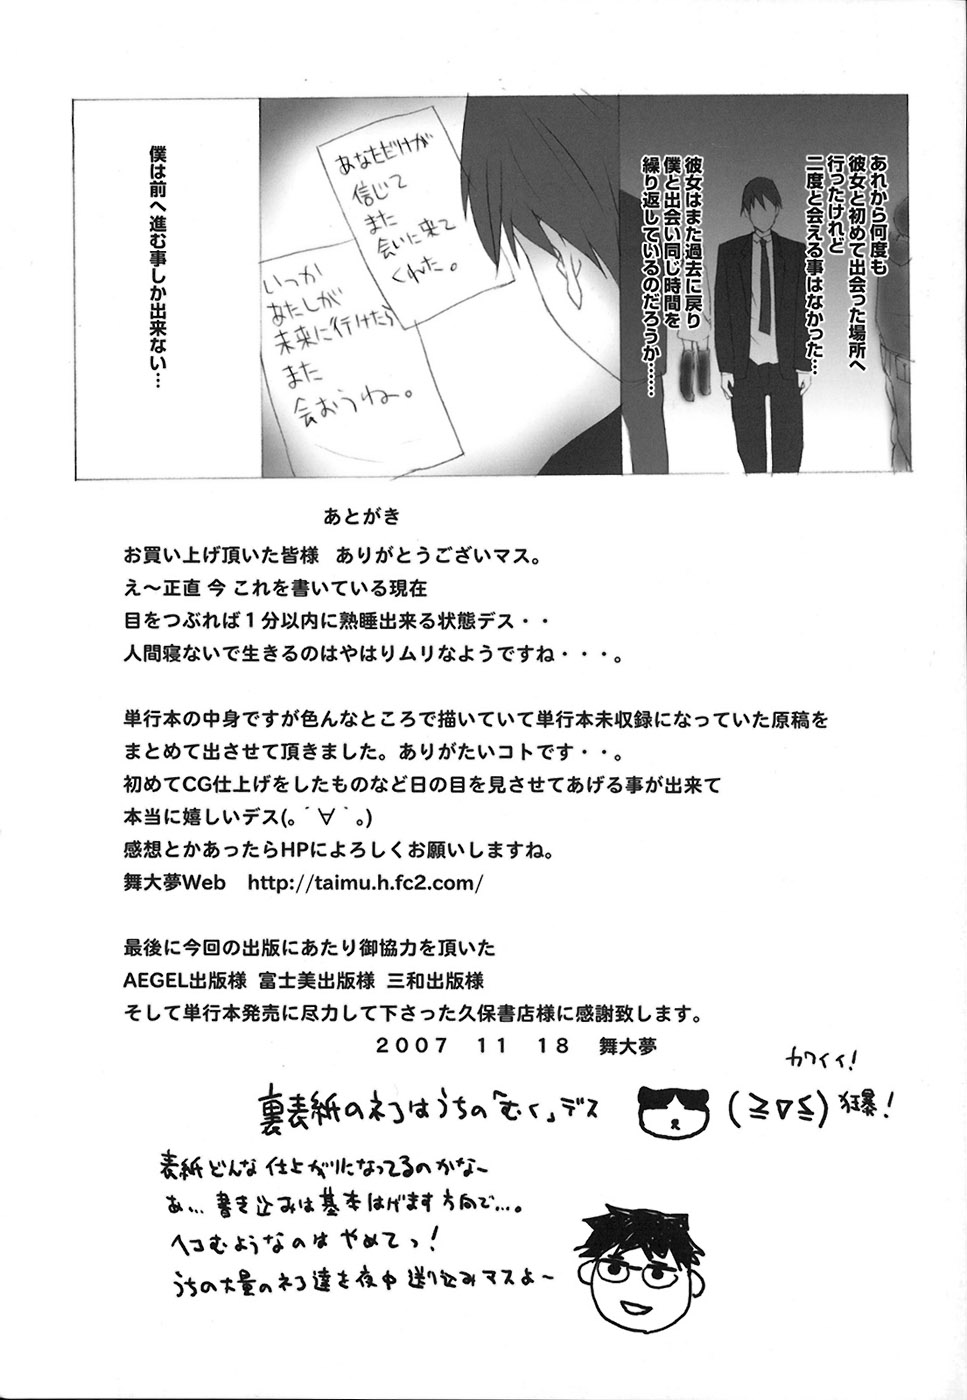 あれから何度も
彼女と初めて出会った場所へ
行ったけれど
二度と会える事はなかった…
彼女はまた過去に戻り
僕と出会い同じ時間を
繰り返しているのだろうか……
あなただけが
信じて
また
会いに来て
くれた。
いつか
あたしが
未来に行けたら
また
会おうね。
僕は前へ進む事しか出来ない…
あとがき
お買い上げ頂いた皆様　ありがとうございマス。
え～正直 今 これを書いている現在
目をつぶれば１分以内に熟睡出来る状態デス・・
人間寝ないで生きるのはやはりムリなようですね・・・。
単行本の中身ですが色んなところで描いていて単行本未収録になっていた原稿を
まとめて出させて頂きました。ありがたいコトです・・。
初めてCG仕上げをしたものなど日の目を見させてあげる事が出来て
本当に嬉しいデス(。´∀｀。)
感想とかあったらHPによろしくお願いしますね。
舞大夢Web　http://taimu.h.fc2.com/
最後に今回の出版にあたり御協力を頂いた
AEGEL出版様 富士美出版様 三和出版様
そして単行本発売に尽力して下さった久保書店様に感謝致します。
２００７　１１　１８　舞大夢
カワイイ！
裏表紙のネコはうちの「むく」デス
(≧▽≦)
狂暴！
表紙どんな仕上がりになってるのかな～
あ…書き込みは基本はげます方向で…。
ヘコむようなのは やめてっ！
うちの大量のネコ達を夜中 送り込みマスよ～